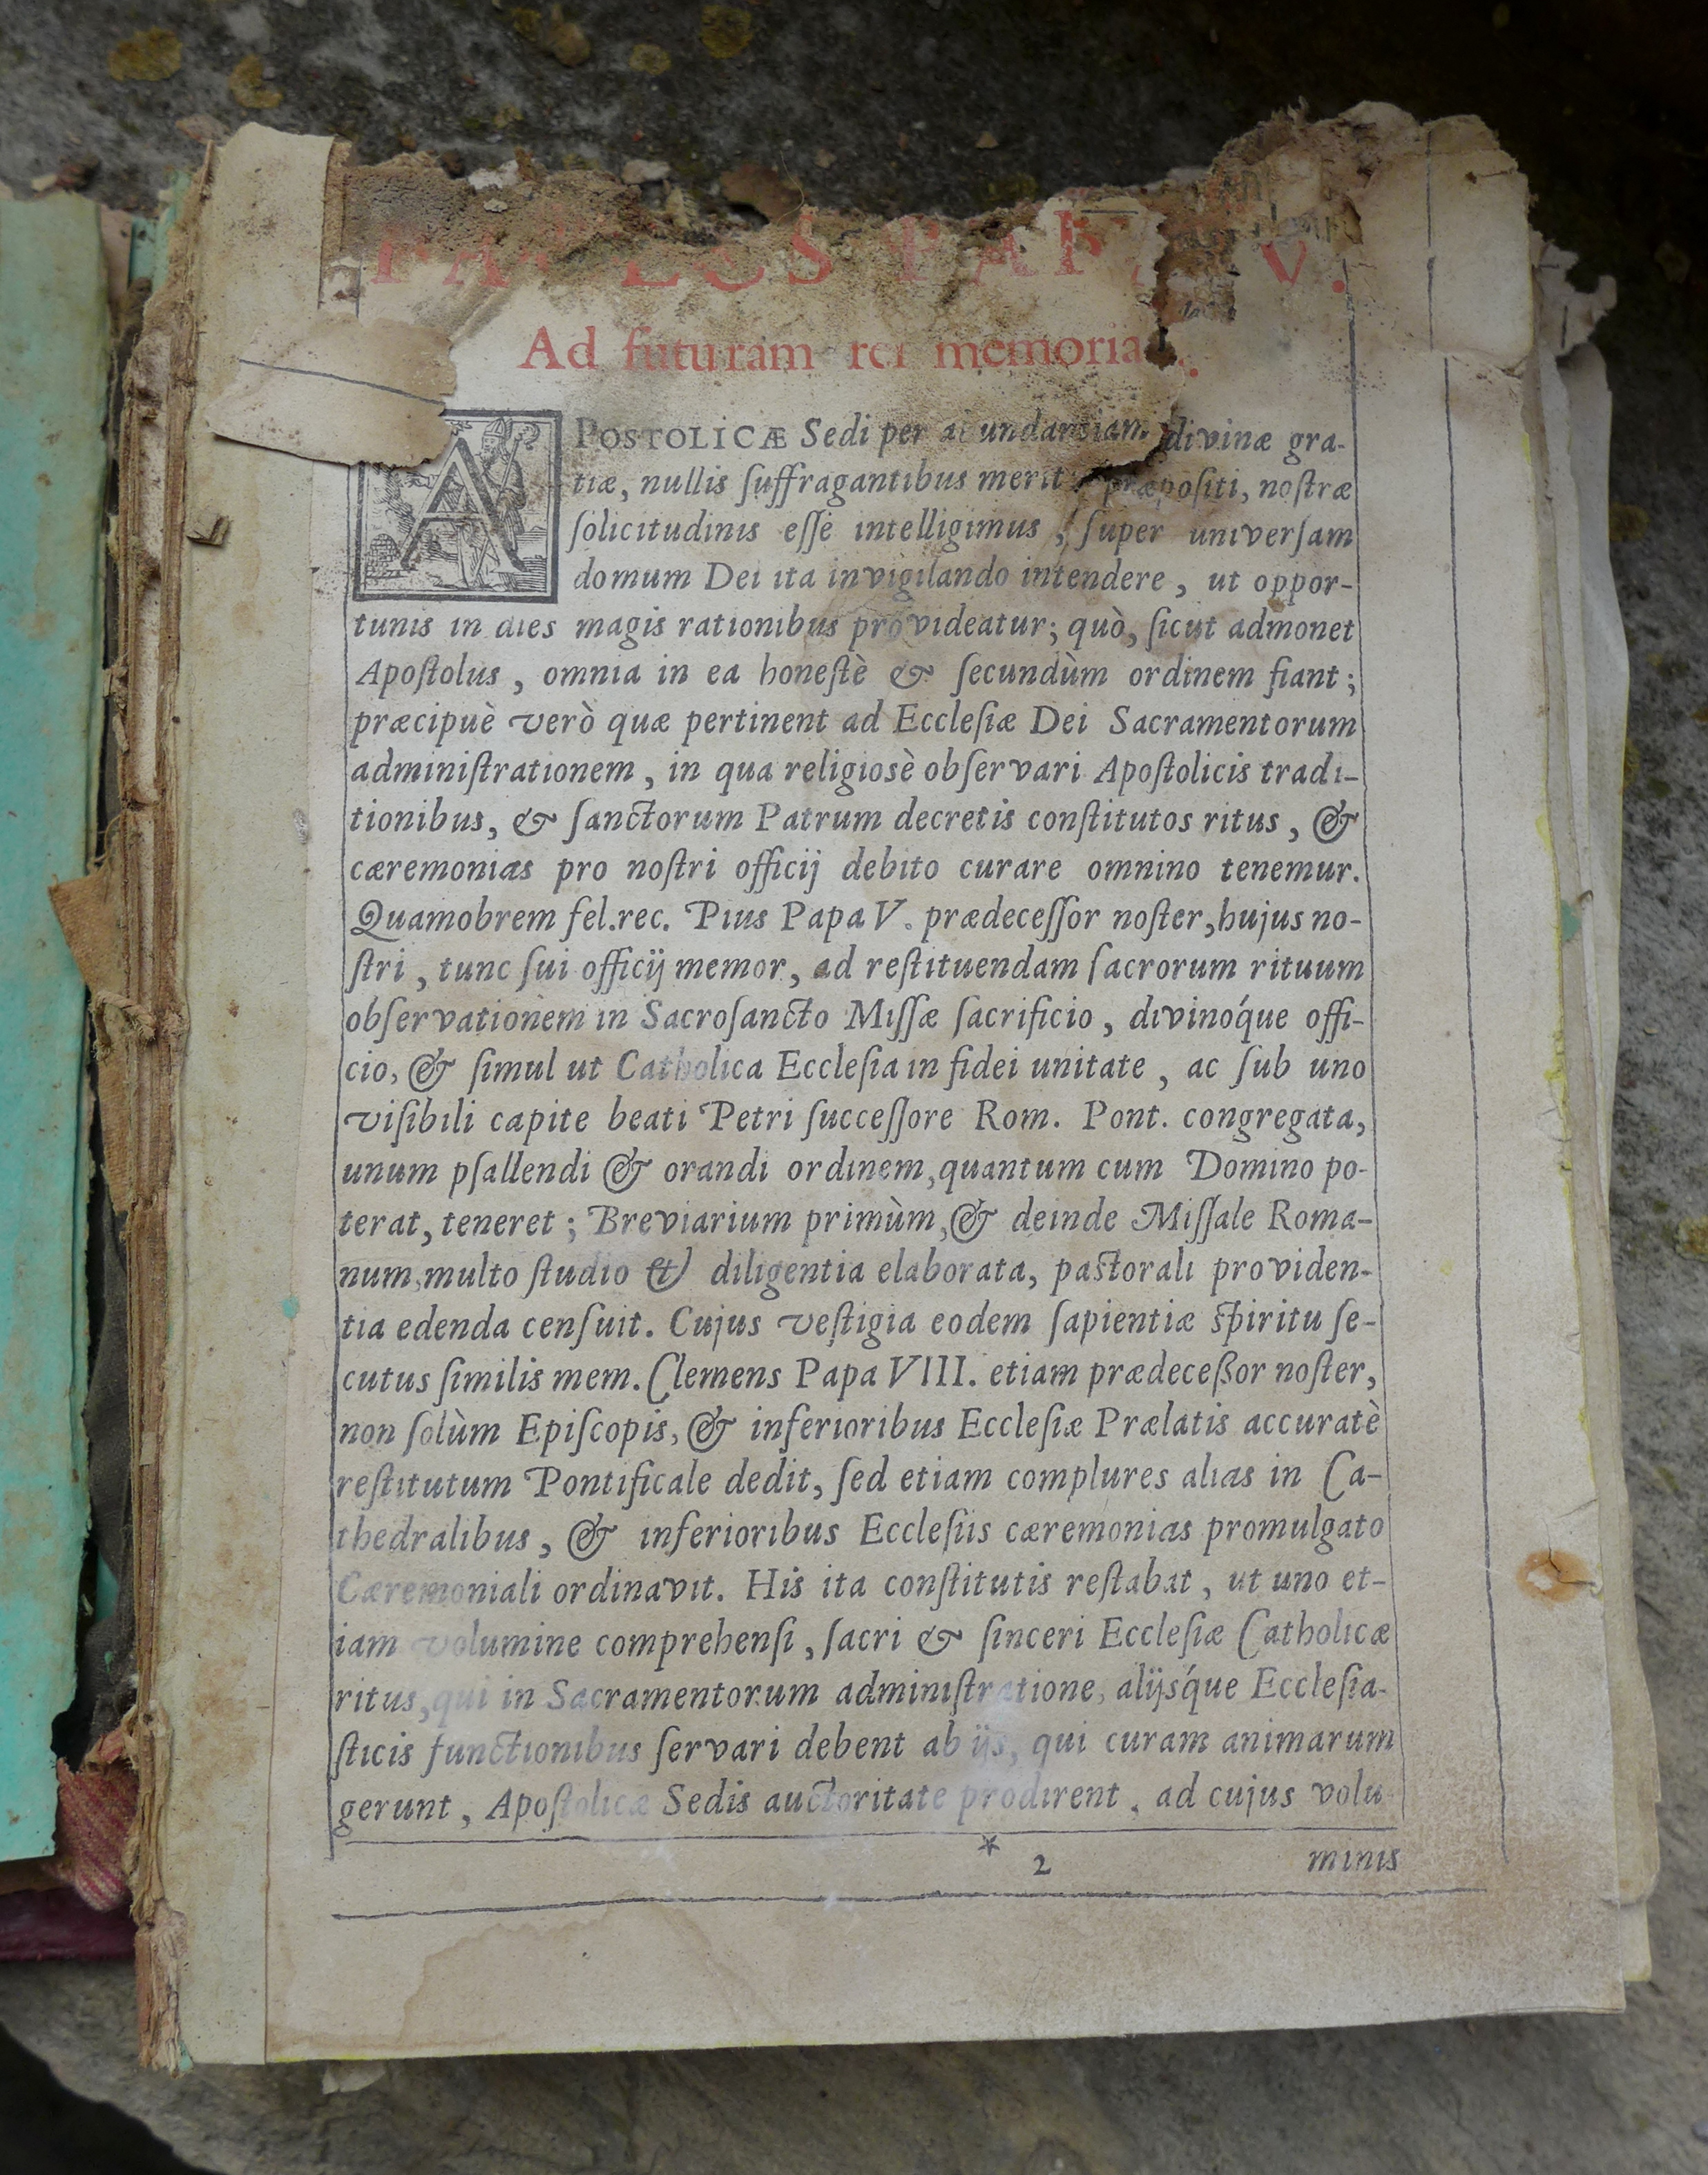 PAULUS PAPA V.
Ad futuram rei memoriam.
APOSTOLICÆ Sedi per abundantiam divinæ gra-
tiæ, nullis ſuffragantibus meritis præpoſiti, noſtræ
ſolicitudinis eſſe intelligimus, ſuper univerſam
domum Dei ita invigilando intendere, ut oppor-
tunis in dies magis rationibus provideatur; quò, ſicut admonet
Apoſtolus, omnia in ea honeſtè & ſecundùm ordinem fiant;
præcipuè verò quæ pertinent ad Eccleſiæ Dei Sacramentorum
adminiſtrationem, in qua religiosè obſervari Apoſtolicis tradi-
tionibus, & ſanctorum Patrum decretis conſtitutos ritus, &
cæremonias pro noſtri officij debito curare omnino tenemur.
Quamobrem fel.rec. Pius Papa V. prædeceſſor noſter, hujus no-
ſtri, tunc ſui officij memor, ad reſtituendam ſacrorum rituum
obſervationem in Sacroſancto Miſſæ ſacrificio, divinóque offi-
cio, & ſimul ut Catholica Eccleſia in fidei unitate, ac ſub uno
viſibili capite beati Petri ſucceſſore Rom. Pont. congregata,
unum pſallendi & orandi ordinem, quantum cum Domino po-
terat, teneret; Breviarium primùm, & deinde Miſſale Roma-
num, multo ſtudio & diligentia elaborata, paſtorali providen-
tia edenda cenſuit. Cujus veſtigia eodem ſapientiæ ſpiritu ſe-
cutus ſimilis mem. Clemens Papa VIII. etiam prædeceßor noſter,
non ſolùm Epiſcopis, & inferioribus Eccleſiæ Prælatis accuratè
reſtitutum Pontificale dedit, ſed etiam complures alias in Ca-
thedralibus, & inferioribus Eccleſiis cæremonias promulgato
Cæremoniali ordinavit. His ita conſtitutis reſtabat, ut uno et-
iam volumine comprehenſi, ſacri & ſinceri Eccleſiæ Catholicæ
ritus, qui in Sacramentorum adminiſtratione, alijsq́ue Eccleſia-
ſticis functionibus ſervari debent ab ijs, qui curam animarum
gerunt, Apoſtolicæ Sedis auctoritate prodirent, ad cujus volu
* 2 minis